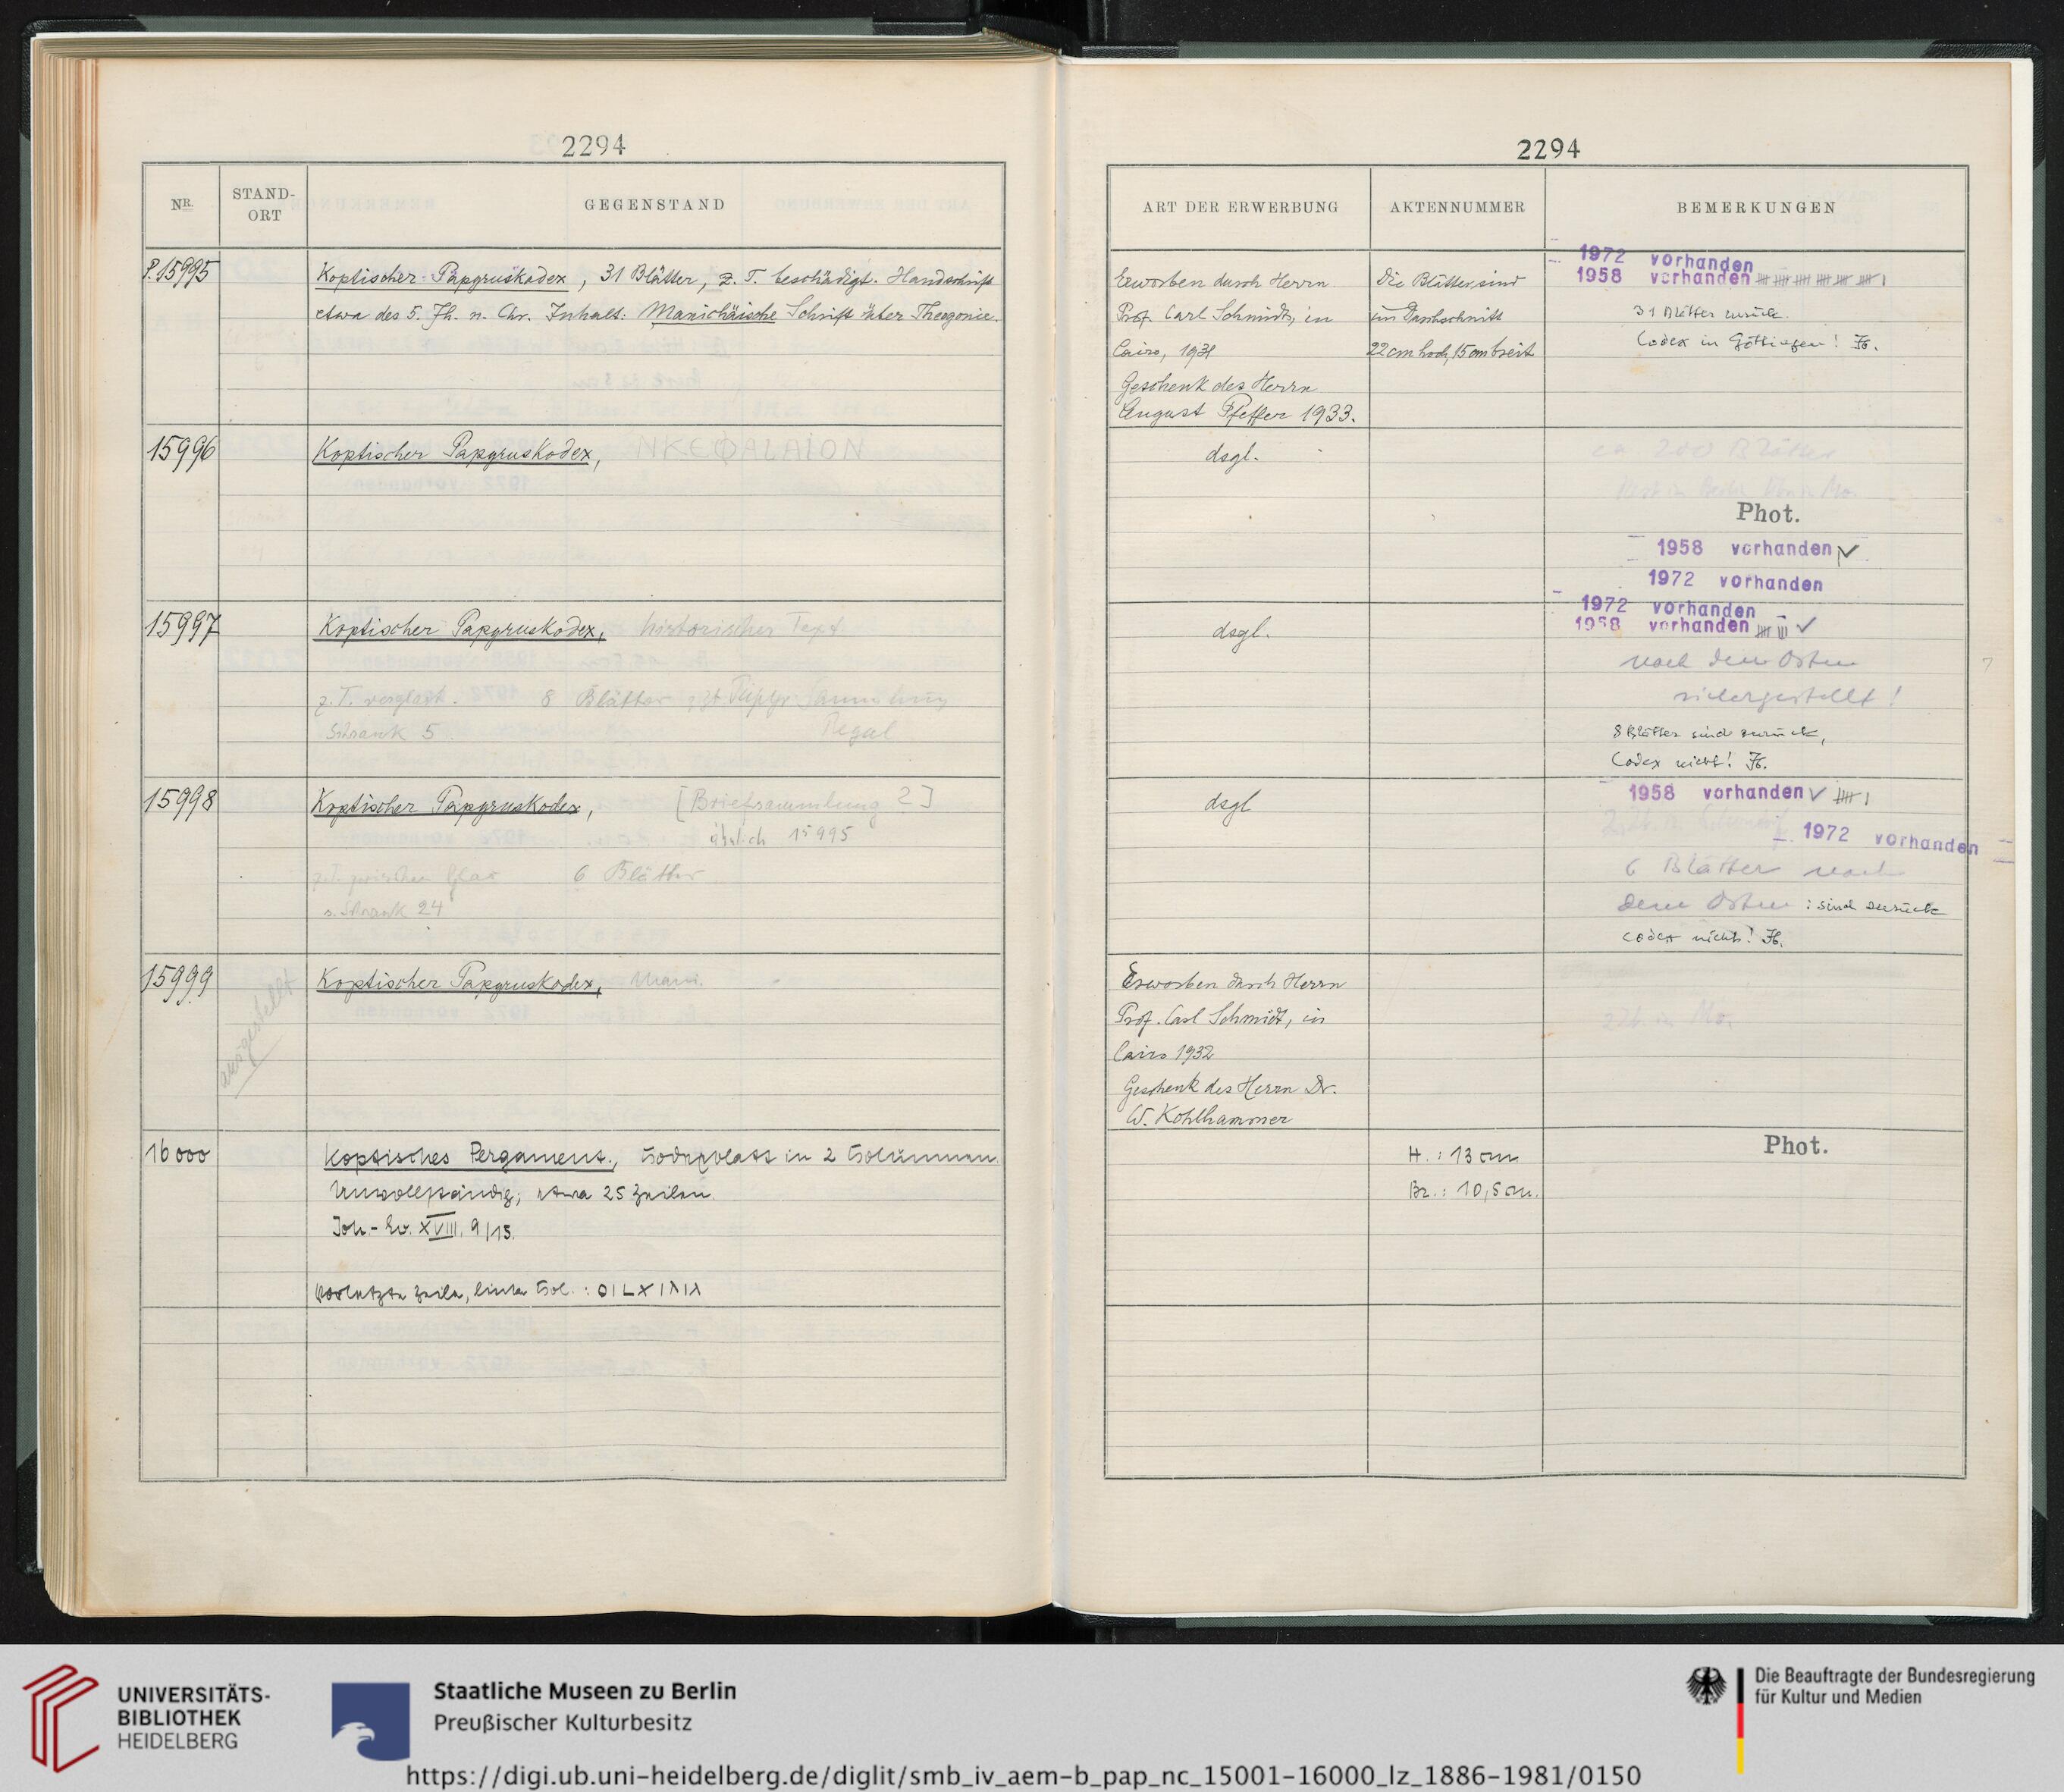 2294
NR.
STAND-
ORT
GEGENSTAND
P. 15995
Koptischer Papyruskodex, 31 Blätter, z. T. beschädigt. Handschrift
etwa des 5. Jh. n. Chr. Inhalt: Manichäische Schrift über Theogonie.
15996
Koptischer Papyruskodex, NKEΦALAION
15997
Koptischer Papyruskodex, historischer Text
z. T. verglast. 8 Blätter z. Zt. Papyr. Sammlung
Schrank 5 Regal
15998
Koptischer Papyruskodex, [Briefsammlung ?]
ähnlich 15995
z. T. zwischen Glas 6 Blätter
s. Schrank 24
15999
ausgestellt
Koptischer Papyruskodex, Mani.
16000
Koptisches Pergament., Codexblatt in 2 Columnen.
Unvollständig; etwa 25 Zeilen.
Joh.-Ev. XVIII, 9/13.
Vorletzte Zeile, linke Col. :
2294
ART DER ERWERBUNG
AKTENNUMMER
BEMERKUNGEN
Erworben durch Herrn
Prof. Carl Schmidt, in
Cairo, 1931
Geschenk des Herrn
August Pfeffer 1933.
Die Blätter sind
im Durchschnitt
22 cm hoch, 15 cm breit
1972 vorhanden
1958 vorhanden
31 Blätter zurück.
Codex in Göttingen!
dsgl.
ca 200 Blätter
Phot.
1958 vorhanden ✓
1972 vorhanden
dsgl.
1972 vorhanden
1958 vorhanden ✓
nach dem Osten
sichergestellt!
8 Blätter sind zurück,
Codex nicht!
dsgl
1958 vorhanden ✓
1972 vorhanden
6 Blätter nach
dem Osten : sind zurück
Codex nicht!
Erworben durch Herrn
Prof. Carl Schmidt, in
Cairo 1932
Geschenk des Herrn Dr.
W. Kohlhammer
H. : 13 cm
Br. : 10,5 cm.
Phot.
UNIVERSITÄTS-
BIBLIOTHEK
HEIDELBERG
Staatliche Museen zu Berlin
Preußischer Kulturbesitz
Die Beauftragte der Bundesregierung
für Kultur und Medien
https://digi.ub.uni-heidelberg.de/diglit/smb_iv_aem-b_pap_nc_15001-16000_lz_1886-1981/0150